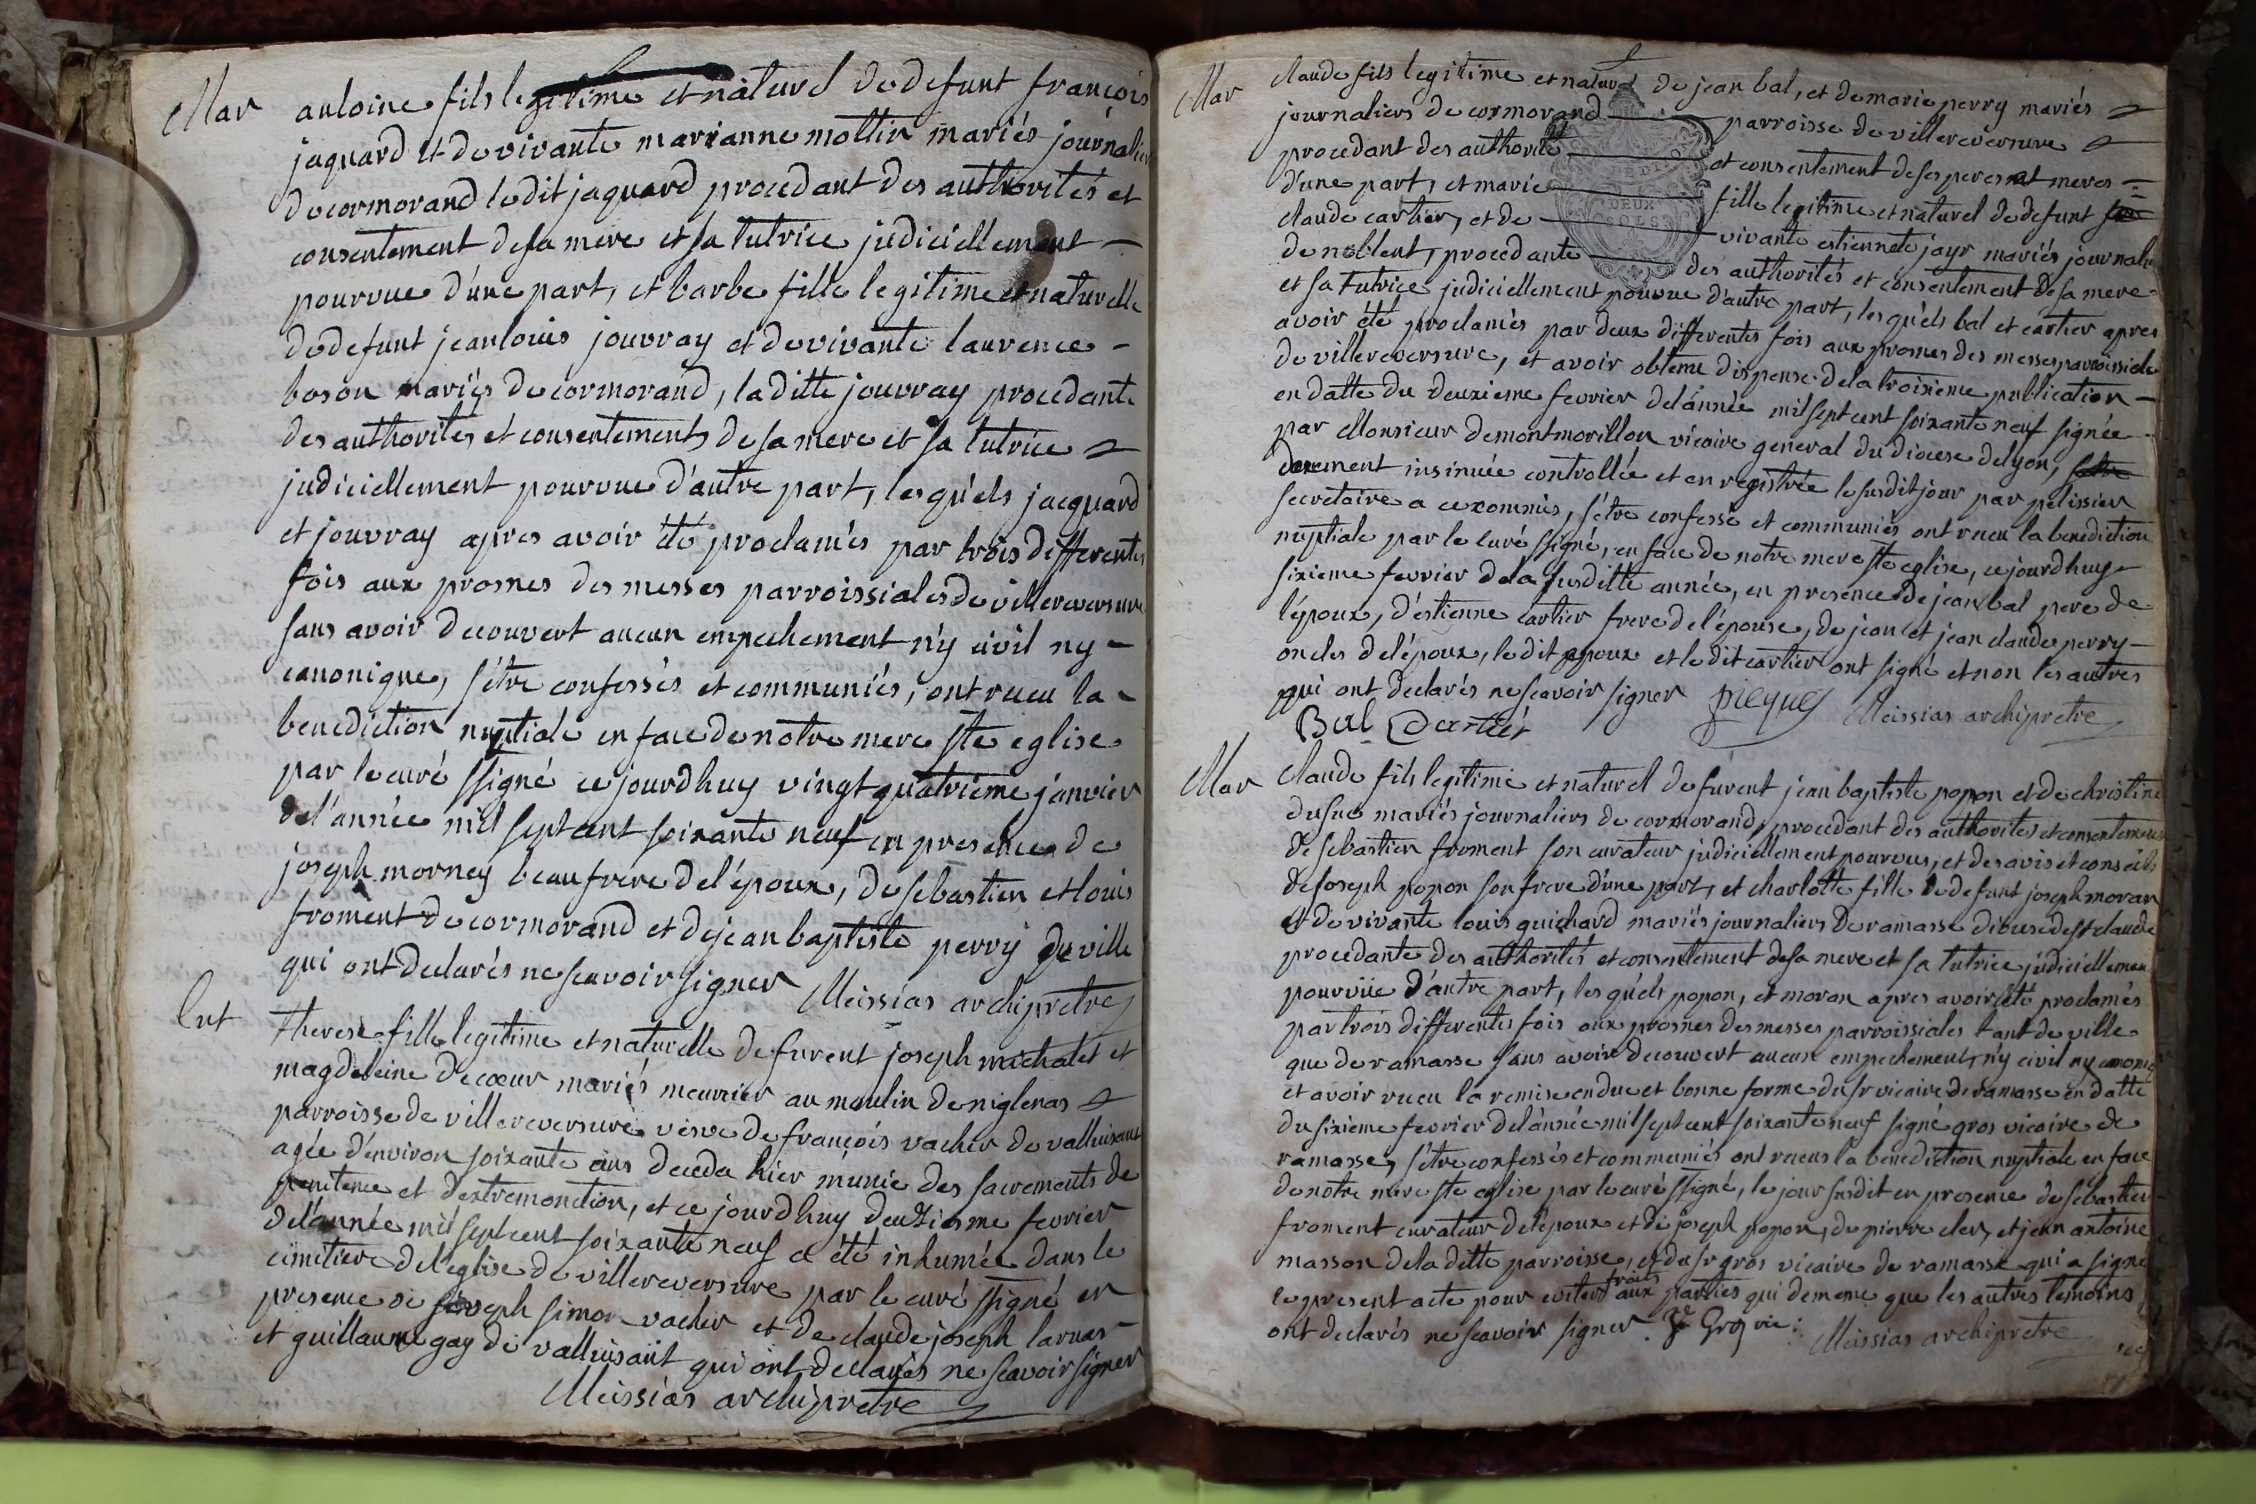 Mar antoine fils legitime et naturel de defunt françois
jaquard et de vivante marianne mottin mariés journaliers
de cormorand ledit jaquard procedant des authorités et
consentement de sa mere et sa tutrice judiciellement
pourvue d'une part, et barbe fille legitime et naturelle
de defunt jean louis jouvray et de vivante laurence
boson mariés de cormorand, la ditte jouvray procedante
des authorites et consentements de sa mere et sa tutrice
judiciellement pourvue d'autre part, lesquéls jacquard
et jouvray apres avoir été proclamés par trois differentes
fois aux prosnes des messes parroissiales de villereversure
sans avoir decouvert aucun empechement n'y civil ny
canonique, s'étre confessés et communiés, ont recu la
benediction nuptiale en face de notre mere ste eglise
par le curé ssigné ce jourdhuy vingt quatrieme janvier
de l'année mil sept cent soixante neuf en presence de
joseph mornay beaufrere de l'époux, de sebastien et louis
froment de cormorand et de jean baptiste perry de ville
qui ont declarés ne scavoir signer Meissias archipretre
Ent therese fille legitime et naturelle de furent joseph michalet et
magdeleine decœur mariés meunier au moulin de niglenas
parroisse de villereversure veuve de françois vacher de valluisant
agée d'environ soixante ans deceda hier munie des sacrements de
penitence et d'extremonction, et ce jourdhuy deuxieme fevrier
de l'année mil sept cent soixante neuf a été inhumée dans le
cimetiere de l'eglise de villereversure par le curé ssigné en
presence de joseph simon vacher et de claude joseph larnas
et guillaume gay de valluisant qui ont declarés ne scavoir signer
Meissias archipretre
Mar claude fils legitime et naturel de jean bal, et de marie perry mariés
journaliers de cormorand parroisse de villereversure
procedant des authorité et consentement de ses peres et meres
d'une part, et marie fille legitime et naturel de defunt
claude cartier, et de vivante estiennete jayr mariés journaliers
DEUX
SOLS
de noblent, procedante des authorités et consentement de sa mere
et sa tutrice judiciellement pourvue d'autre part, lesquéls bal et cartier apres
avoir été proclamés par deux differentes fois aux prosnes des messes parroissiales
de villereversure, et avoir obtenu dispense de la troisieme publication
en datte du deuxieme fevrier de l'année mil sept cent soixante neuf signée
par Monsieur demontmorillon vicaire general du diocese de lyon,
duement insinuée controllée et enregistrée le susdit jour par pelissier
secretaire a ce commis, s'étre confessé et communiés ont recu la benediction
nuptiale par le curé ssigné, en face de notre mere ste eglise, ce jourdhuy
sixieme fevrier de la susditte année, en presence de jean bal pere de
l'époux, d'estienne cartier frere de l'épouse, de jean et jean claude perry
oncles de l'époux, le dit epoux et le dit cartier ont signé et non les autres
qui ont declarés ne scavoir signer Meissias archipretre
Bal Cartier
Mar claude fils legitime et naturel de furent jean baptiste popon et de christine
dusuc mariés journaliers de cormorand, procedant des authorités et consentements
de sebastien froment son curateur judiciellement pourvus, et des avis et conseils
de joseph popon son frere d'une part, et charlotte fille de defunt joseph moran
et de vivante louis guichard mariés journaliers de ramasse diocese de st claude
procedante des authorités et consentement de sa mere et sa tutrice judiciellement
pourvüe d'autre part, lesquéls popon, et moran apres avoir été proclamés
par trois differentes fois aux prosnes des messes parroissiales tant de ville
que de ramasse sans avoir decouvert aucun empechement, n'y civil ny canonique
et avoir recu la remise en due et bonne forme du sr vicaire de ramasse en datte
du sixieme fevrier de l'année mil sept cent soixante neuf signé gros vicaire de
ramasse, s'étre confessés et communiés ont receus la benediction nuptiale en face
de notre mere ste eglise par le curé ssigné, le jour susdit en presence de sebastien
froment curateur de l'époux et de joseph popon, de pierre cler, et jean antoine
masson de la ditte parroisse, et du sr gros vicaire de ramasse qui a signé
le present acte pour eviter frais aux parties qui de meme que les autres temoins
ont declarés ne scavoir signer. Gros vic: Meissias archipretre